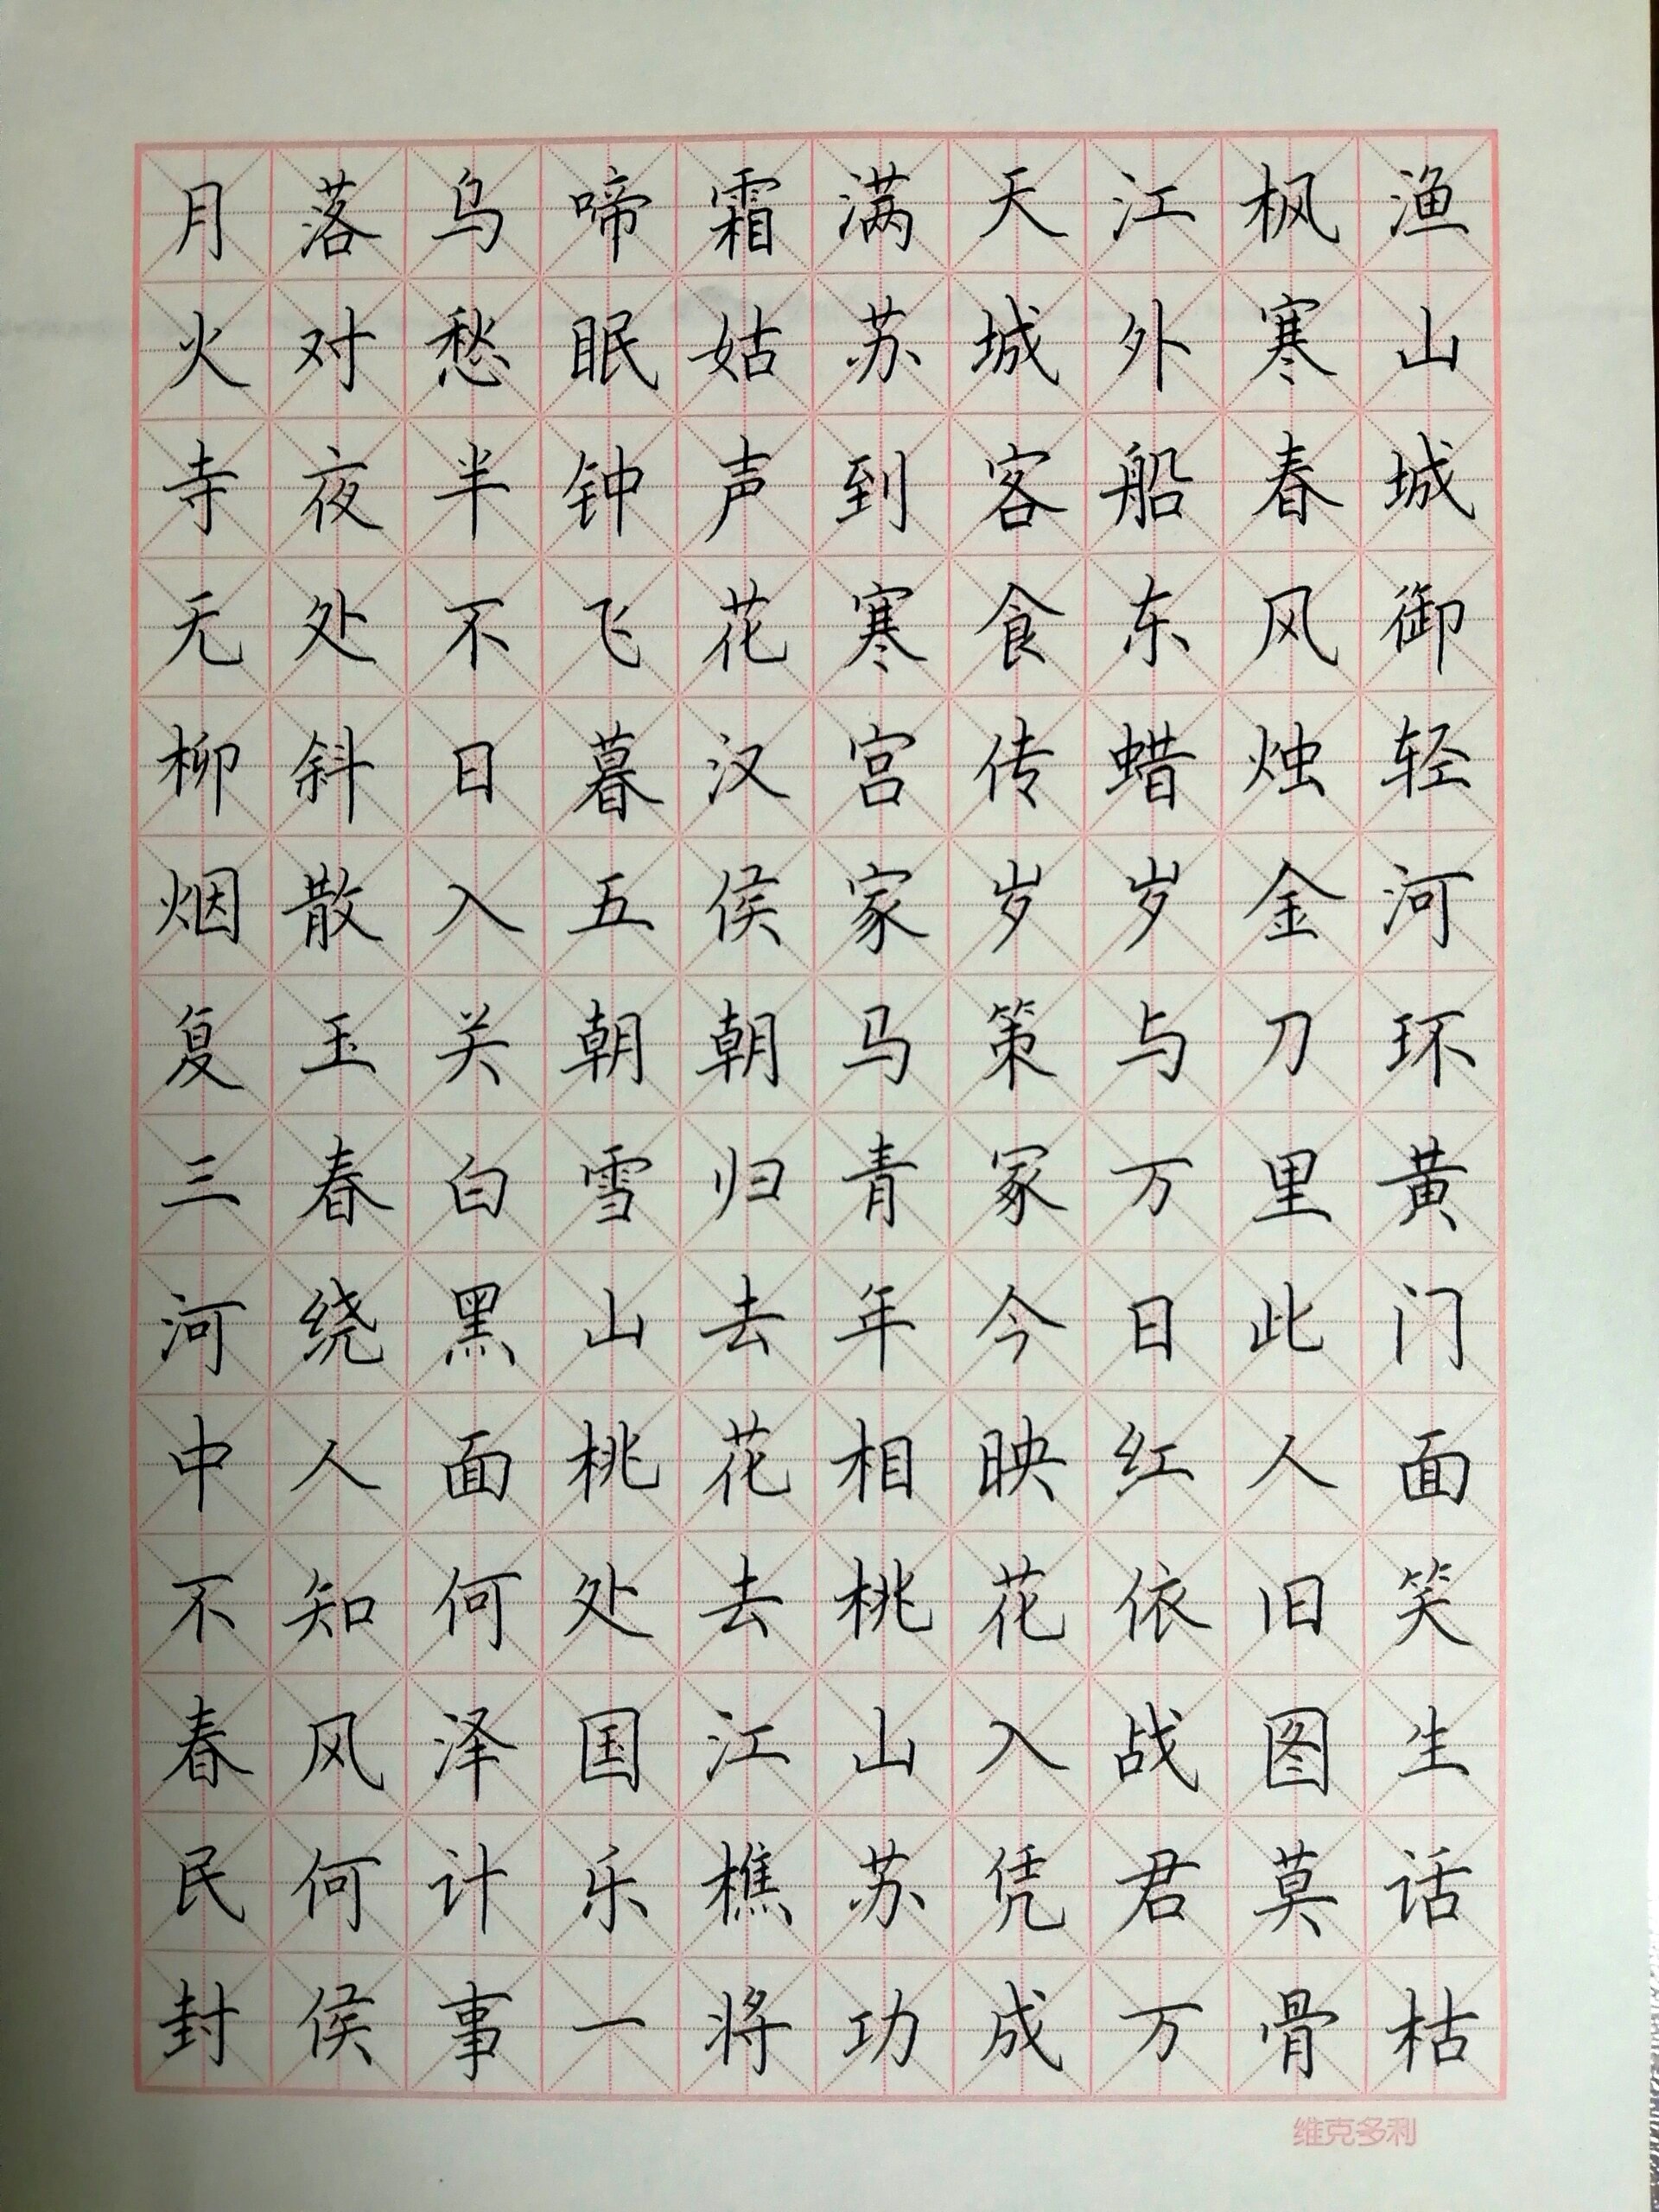 月落乌啼霜满天江枫渔
火对愁眠姑苏城外寒山
寺夜半钟声到客船春城
无处不飞花寒食东风御
柳斜日暮汉宫传蜡烛轻
烟散入五侯家岁岁金河
复玉关朝朝马策与刀环
三春白雪归青冢万里黄
河绕黑山去年今日此门
中人面桃花相映红人面
不知何处去桃花依旧笑
春风泽国江山入战图生
民何计乐樵苏凭君莫话
封侯事一将功成万骨枯
维克多利